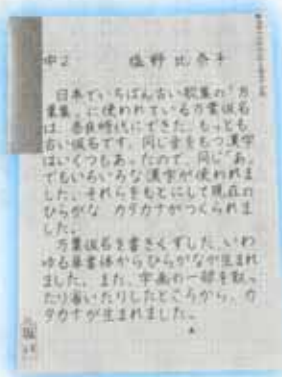 中2 塩野 比奈子
日本でいちばん古い歌集の「万
葉集」に使われている万葉仮名
は、奈良時代にできた、もっとも
古い仮名です。同じ音をもつ漢字
はいくつもあったので、同じ「あ」
でもいろいろな漢字が使われま
した。それらをもとにして現在の
ひらがな、カタカナがつくられま
した。
万葉仮名を書きくずした、いわ
ゆる草書体からひらがなが生まれ
ました。また、字画の一部を取っ
たり省いたりしたところから、カ
タカナが生まれました。